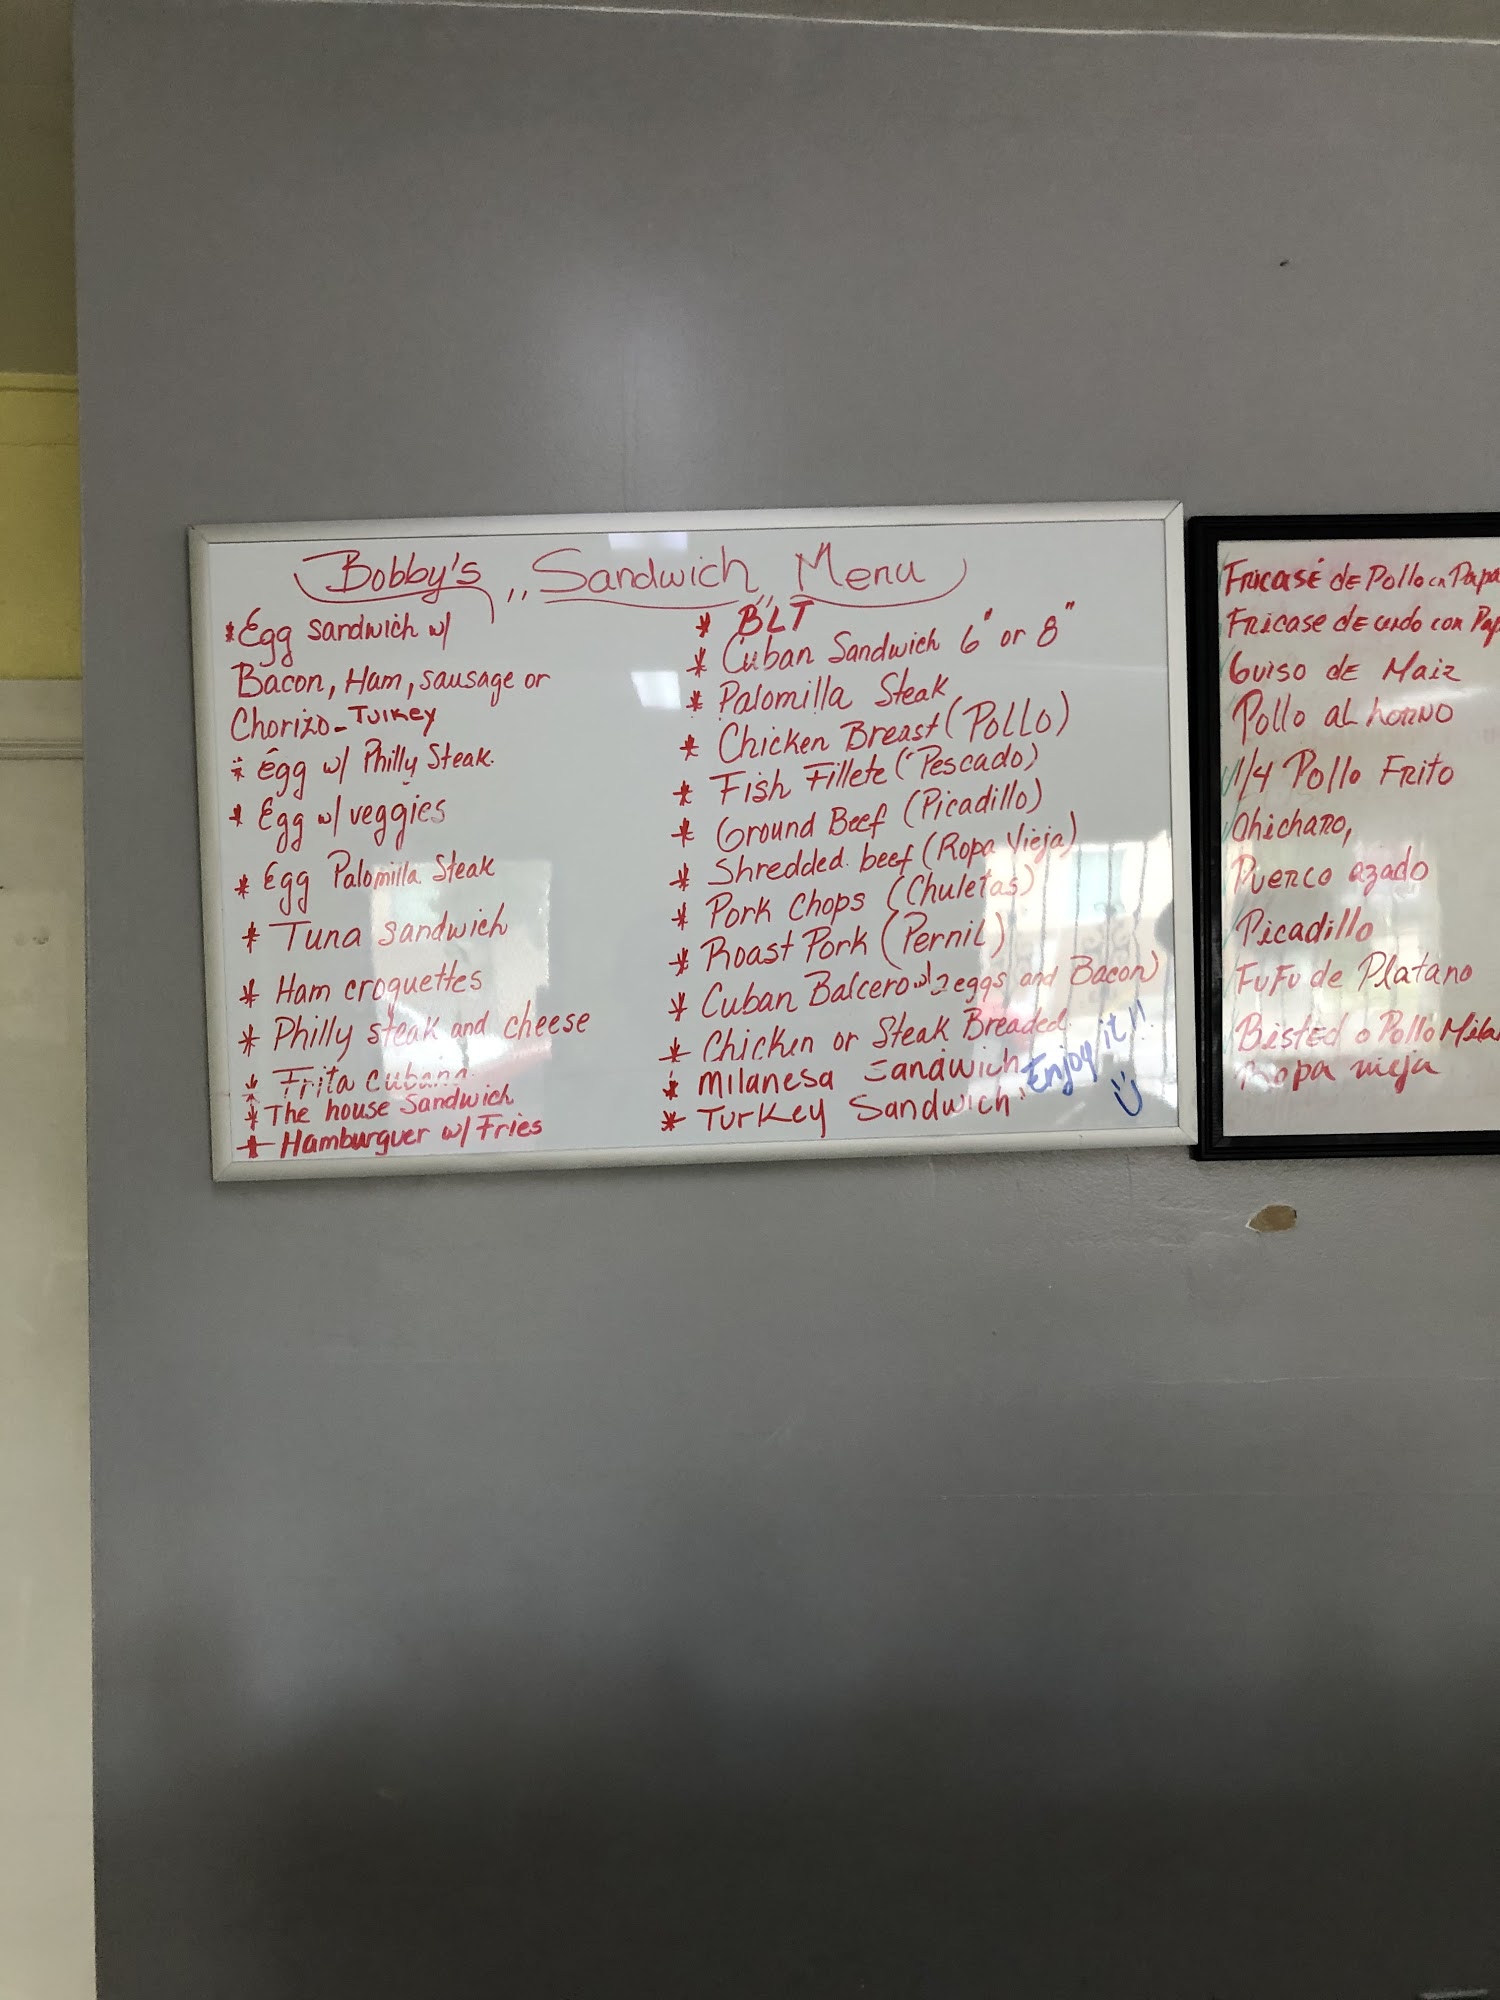 Bobby's "Sandwich" Menu
* Egg sandwich w/
Bacon, Ham, sausage or
Chorizo - Turkey
* Egg w/ Philly Steak.
* Egg w/ veggies
* Egg Palomilla Steak
* Tuna sandwich
* Ham croquettes
* Philly steak and cheese
* Frita cubana
* The house Sandwich
* Hamburguer w/ Fries
* BLT
* Cuban Sandwich 6" or 8"
* Palomilla Steak
* Chicken Breast (Pollo)
* Fish Fillete (Pescado)
* Ground Beef (Picadillo)
* Shredded beef (Ropa Vieja)
* Pork Chops (Chuletas)
* Roast Pork (Pernil)
* Cuban Balcero w/ 2 eggs and Bacon)
* Chicken or Steak Breaded
* Milanesa Sandwich
* Turkey Sandwich
Enjoy it!!
Fricasé de Pollo
Fricase de cerdo con
Guiso de Maiz
Pollo al horno
1/4 Pollo Frito
Chicharo,
Puerco azado
Picadillo
FuFu de Platano
Bisted o Pollo
Ropa vieja